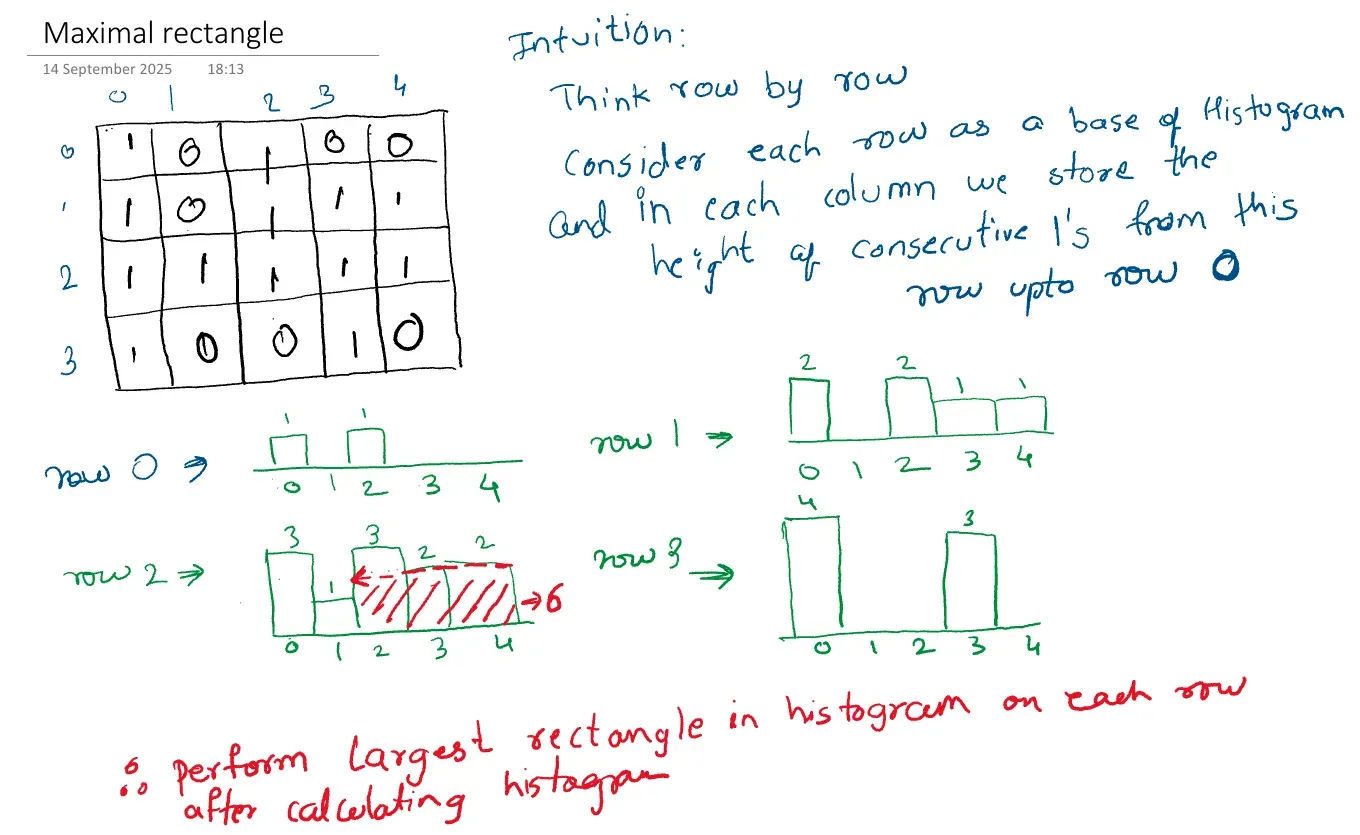 Maximal rectangle
14 September 2025 18:13
Intuition:
Think row by row
Consider each row as a base of Histogram
and in each column we store the
height of consecutive 1's from this
row upto row 0
0 1 2 3 4
0 1 0 1 0 0
1 1 0 1 1 1
2 1 1 1 1 1
3 1 0 0 1 0
row 0 →
1 1
0 1 2 3 4
row 1 →
2 2 1 1
0 1 2 3 4
row 2 →
3 1 3 2 2
→6
0 1 2 3 4
row 3 →
4 3
0 1 2 3 4
∴ perform largest rectangle in histogram on each row
after calculating histogram